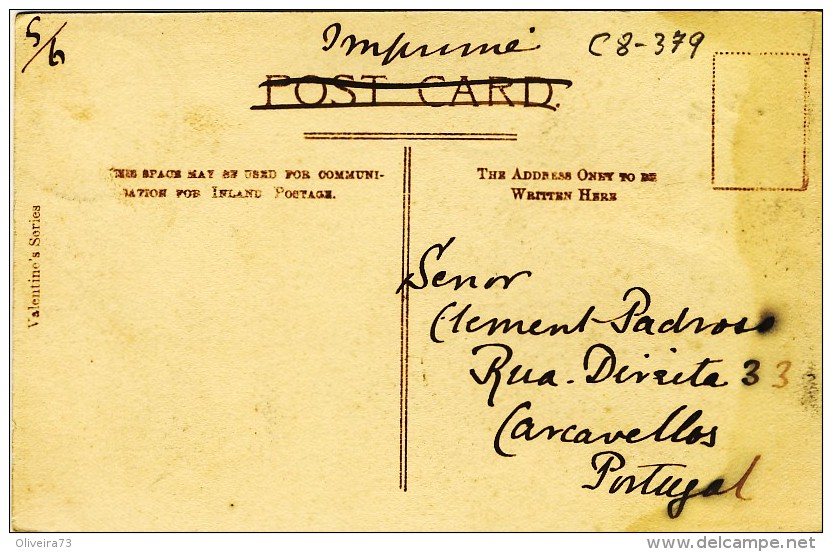 5/6
Imprimé
C8-379
POST CARD.
THIS SPACE MAY BE USED FOR COMMUNI-
CATION FOR INLAND POSTAGE.
THE ADDRESS ONLY TO BE
WRITTEN HERE
Valentine's Series
Senor
Clement Padroso
Rua Direita 33
Carcavellos
Portugal
Oliveira73
www.delcampe.net